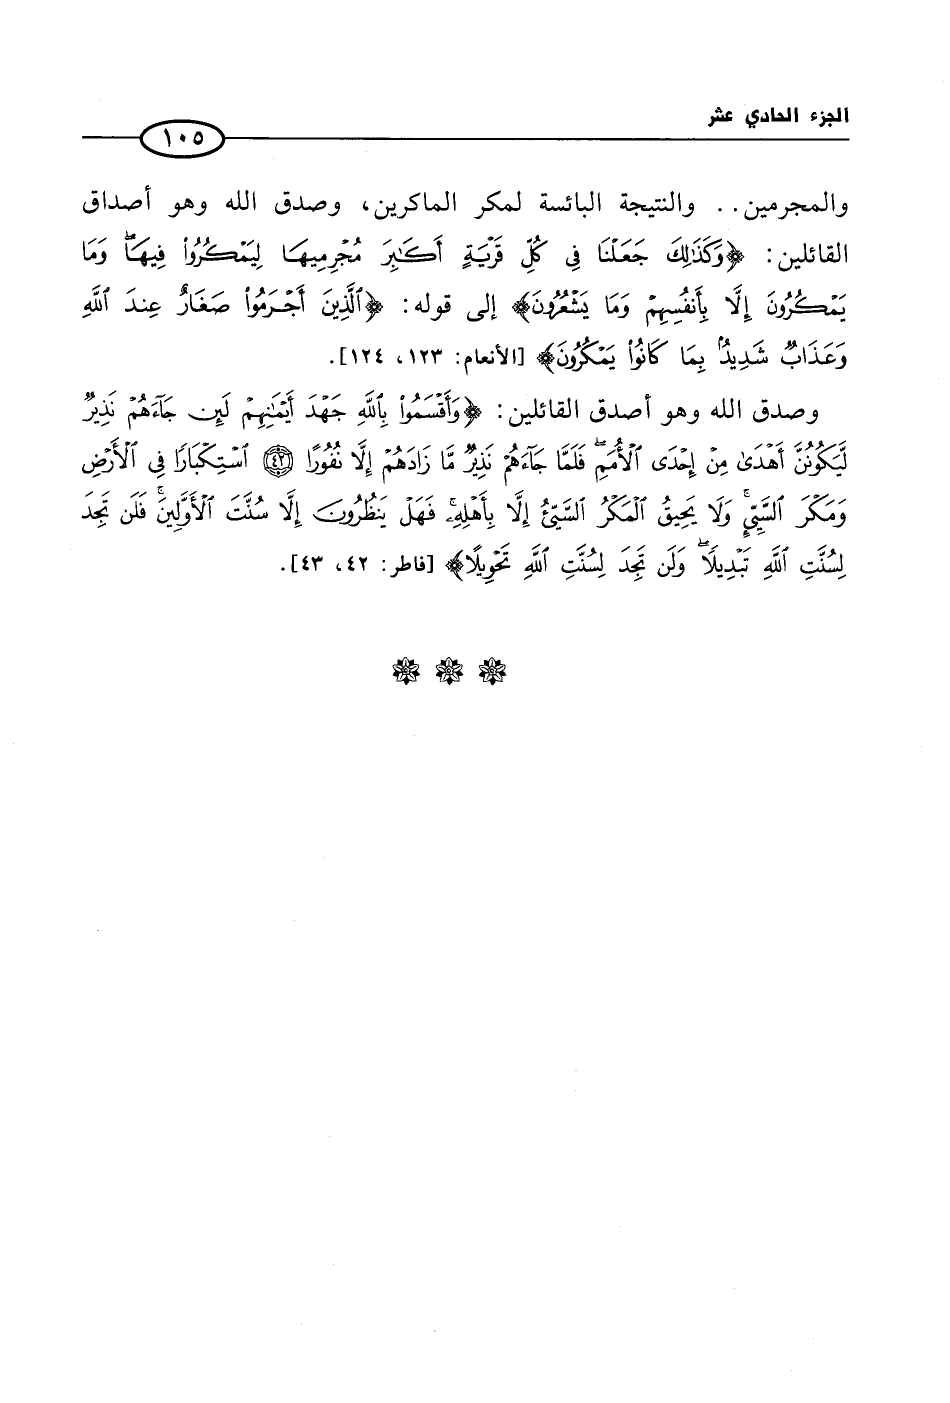 الجزء الحادي عشر
١٠٥
والمجرمين.. والنتيجة البائسة لمكر الماكرين، وصدق الله وهو أصداق
القائلين: ﴿وَكَذَٰلِكَ جَعَلْنَا فِي كُلِّ قَرْيَةٍ أَكَٰبِرَ مُجْرِمِيهَا لِيَمْكُرُوا۟ فِيهَا ۖ وَمَا
يَمْكُرُونَ إِلَّا بِأَنفُسِهِمْ وَمَا يَشْعُرُونَ﴾ إلى قوله: ﴿ٱلَّذِينَ أَجْرَمُوا۟ صَغَارٌ عِندَ ٱللَّهِ
وَعَذَابٌ شَدِيدٌۢ بِمَا كَانُوا۟ يَمْكُرُونَ﴾ [الأنعام: ١٢٣، ١٢٤].
وصدق الله وهو أصدق القائلين: ﴿وَأَقْسَمُوا۟ بِٱللَّهِ جَهْدَ أَيْمَٰنِهِمْ لَئِن جَآءَهُمْ نَذِيرٌ
لَّيَكُونُنَّ أَهْدَىٰ مِنْ إِحْدَى ٱلْأُمَمِ ۖ فَلَمَّا جَآءَهُمْ نَذِيرٌ مَّا زَادَهُمْ إِلَّا نُفُورًا ﴿٤٢﴾ ٱسْتِكْبَارًا فِي ٱلْأَرْضِ
وَمَكْرَ ٱلسَّيِّئِ ۚ وَلَا يَحِيقُ ٱلْمَكْرُ ٱلسَّيِّئُ إِلَّا بِأَهْلِهِۦ ۚ فَهَلْ يَنظُرُونَ إِلَّا سُنَّتَ ٱلْأَوَّلِينَ ۚ فَلَن تَجِدَ
لِسُنَّتِ ٱللَّهِ تَبْدِيلًا ۖ وَلَن تَجِدَ لِسُنَّتِ ٱللَّهِ تَحْوِيلًا﴾ [فاطر: ٤٢، ٤٣].